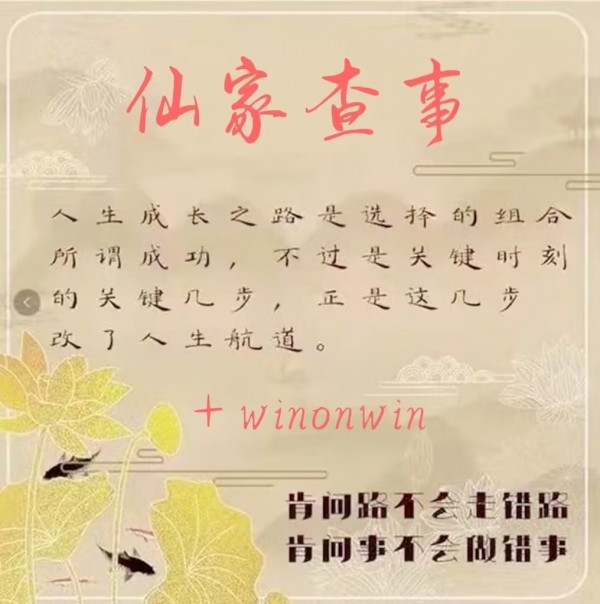 仙家查事
人生成长之路是选择的组合
所谓成功，不过是关键时刻
的关键几步，正是这几步
改了人生航道。
+winonwin
肯问路不会走错路
肯问事不会做错事